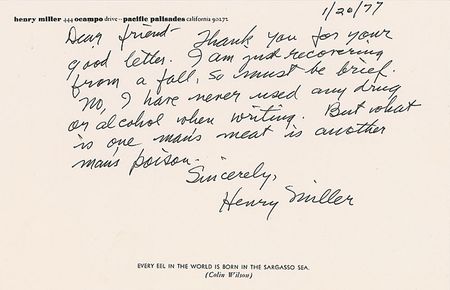 henry miller 444 ocampo drive - pacific palisades california 90272
1/20/77
Dear friend - Thank you for your
good letter. I am just recovering
from a fall, so must be brief.
No, I have never used any drug
or alcohol when writing. But what
is one man's meat is another
man's poison.
Sincerely,
Henry Miller
EVERY EEL IN THE WORLD IS BORN IN THE SARGASSO SEA.
(Colin Wilson)